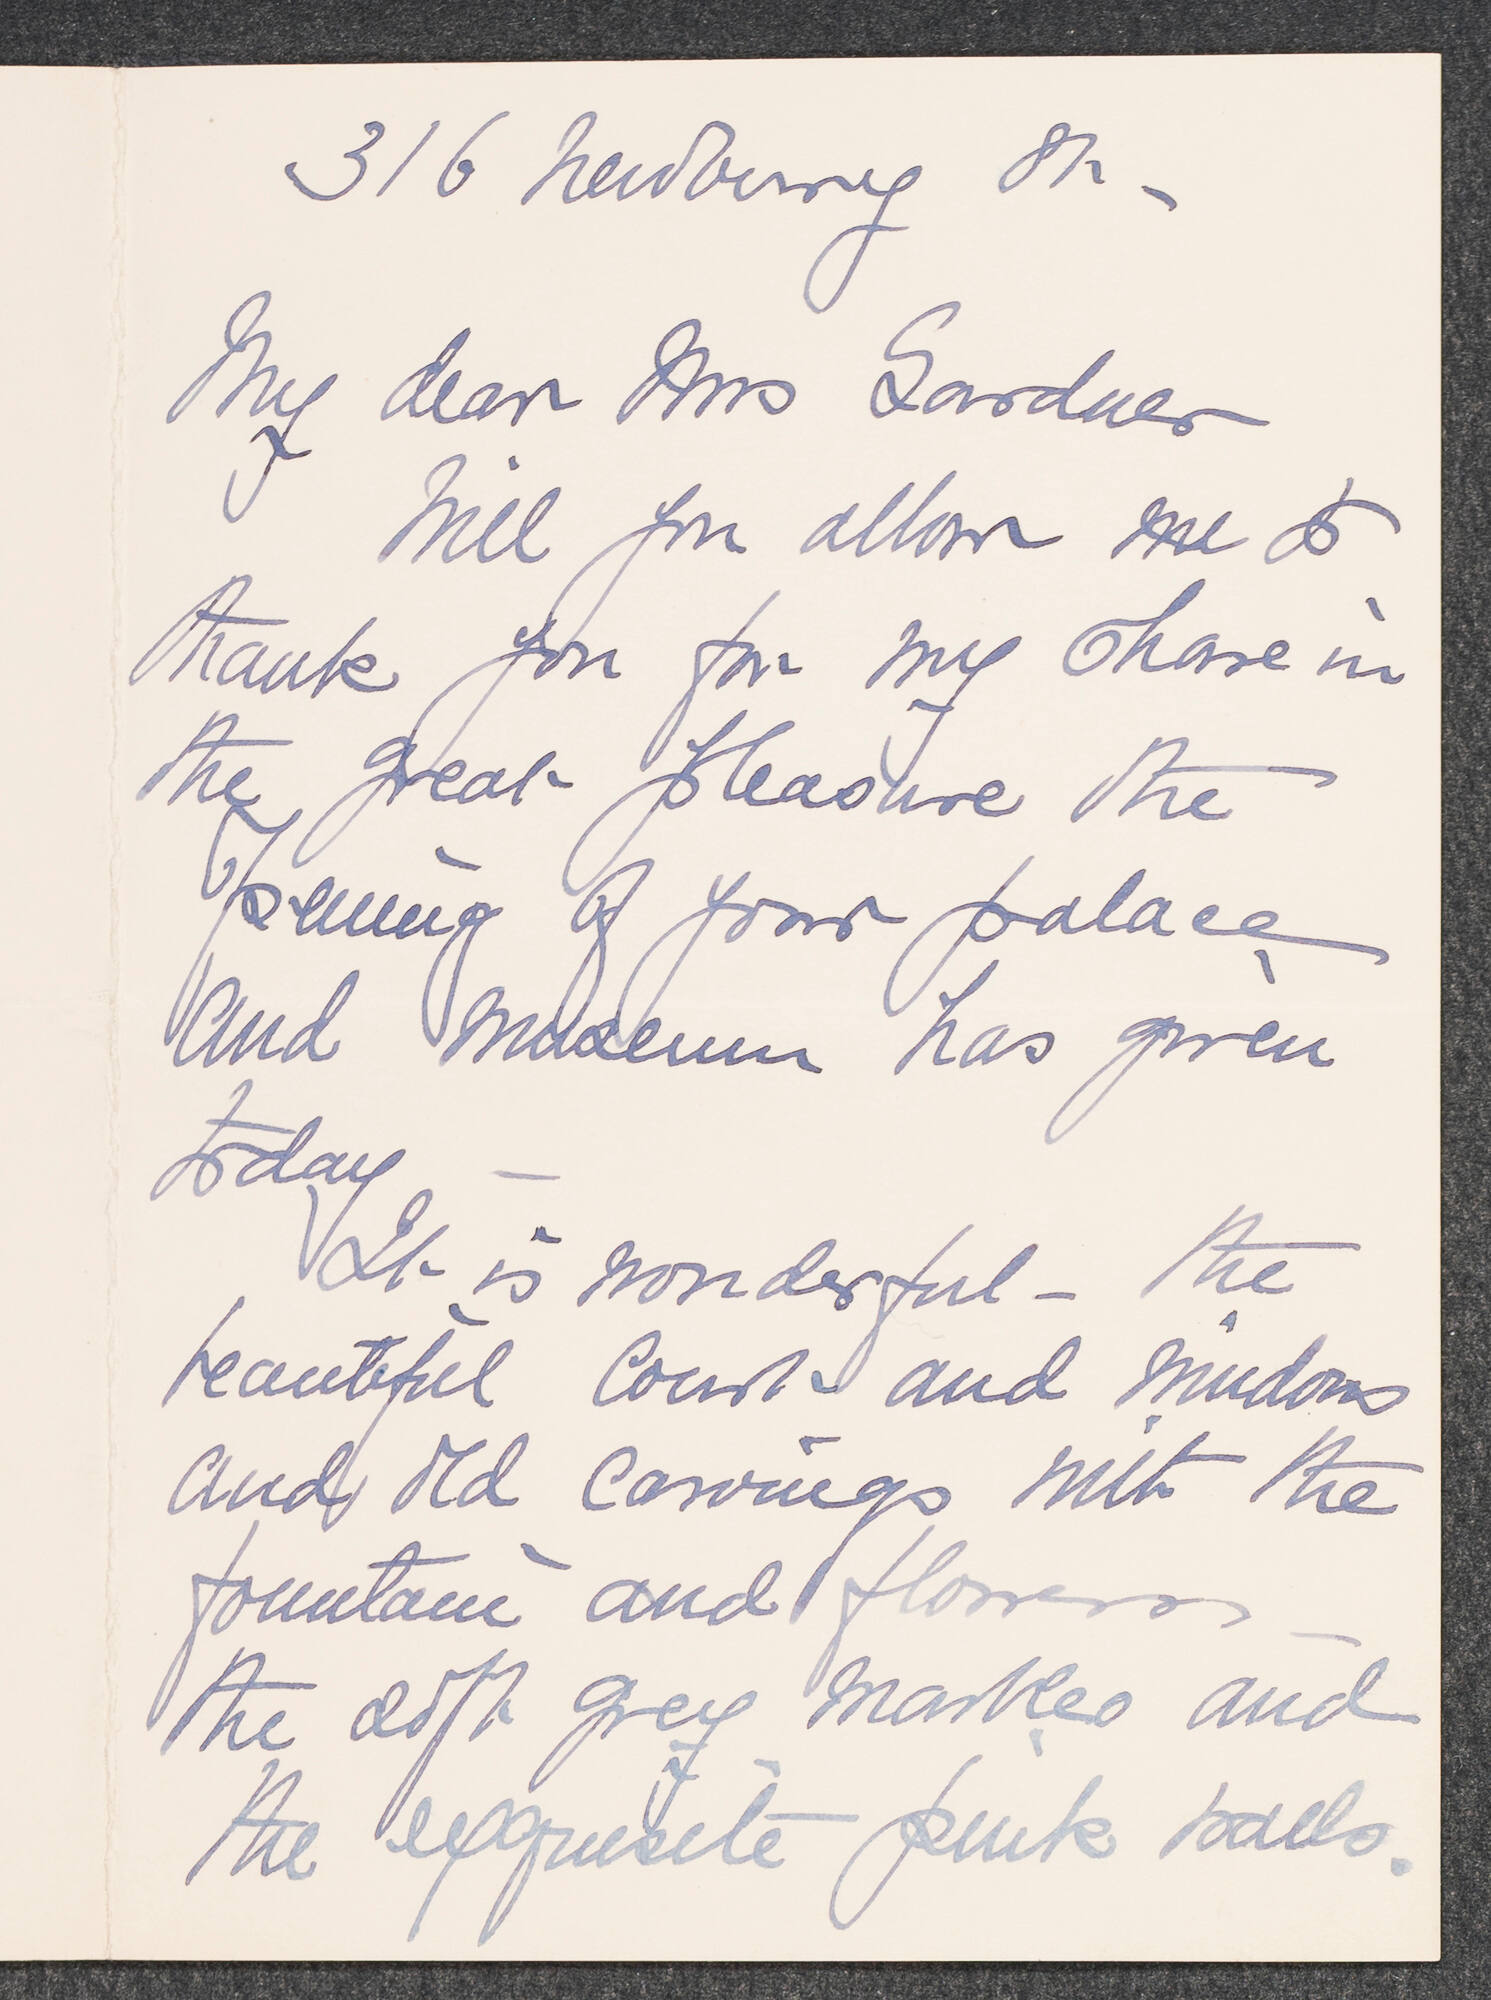 316 Newbury St -
My dear Mrs Gardner
Will you allow me to
thank you for my share in
the great pleasure the
opening of your palace
and museum has given
today -
It is wonderful - the
beautiful court and windows
and old carvings with the
fountain and flowers -
the soft grey marbles and
the exquisite pink walls.